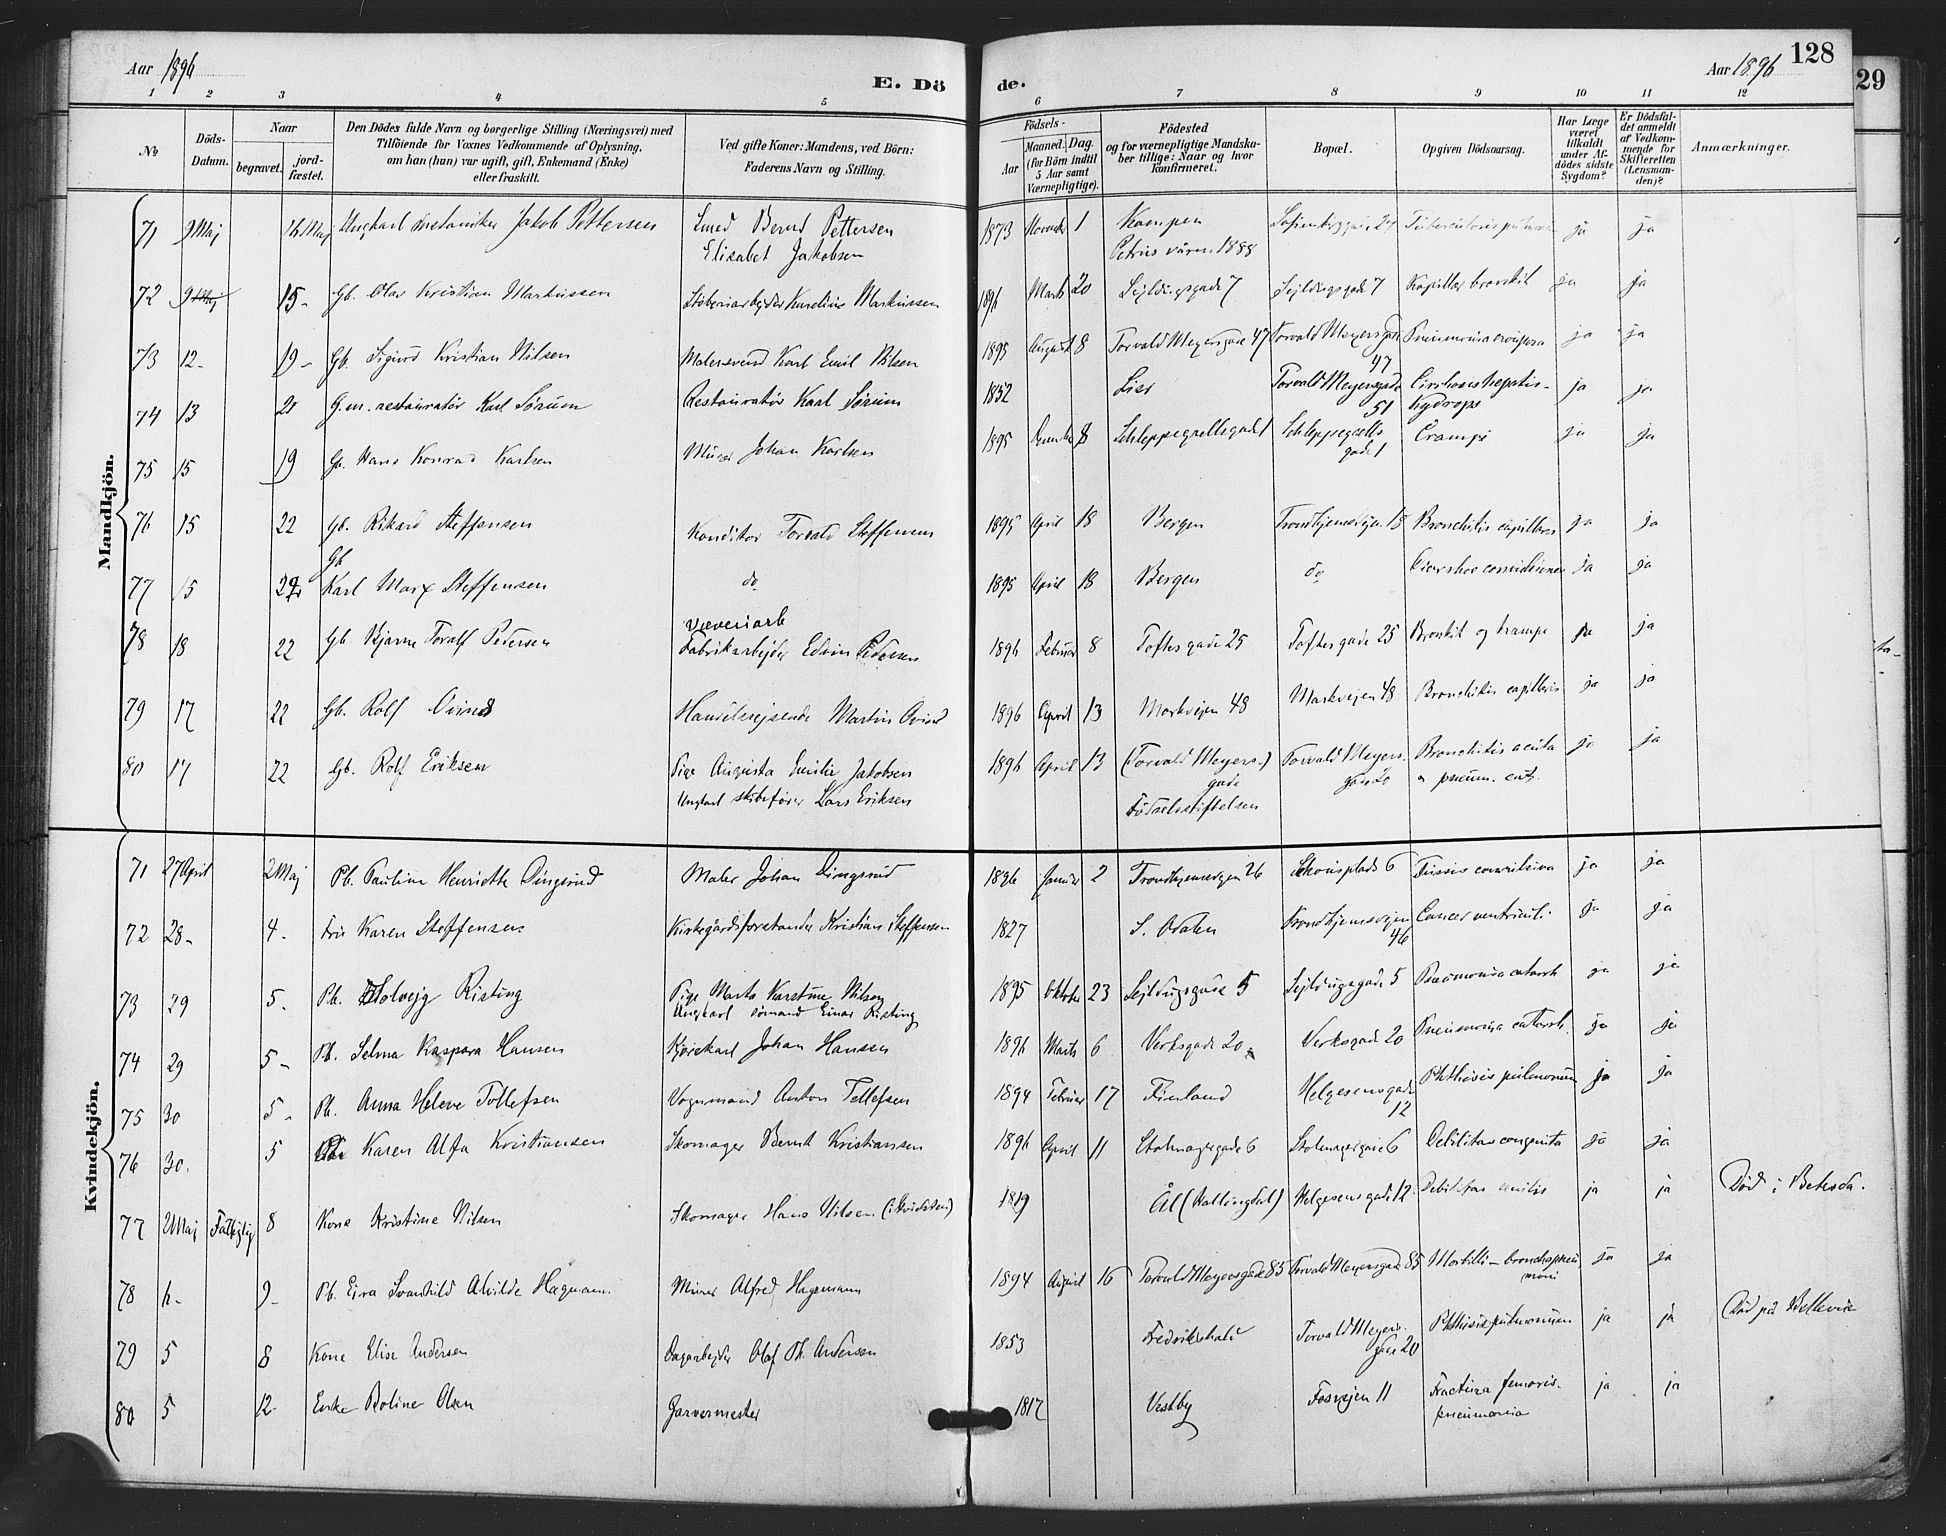 Aar 1896
E. Dö
de.
Aar 1896
128
29
1 2 3 4 5 6 7 8 9 10 11 12
No
Döds-Datum.
Naar
begravet.
jord-fæstet.
Den Dödes fulde Navn og borgerlige Stilling (Næringsvei) med
Tilföiende for Voxnes Vedkommende af Oplysning,
om han (hun) var ugift, gift, Enkemand (Enke)
eller fraskilt.
Ved gifte Koner: Mandens, ved Börn:
Faderens Navn og Stilling.
Födsels-
Aar
Maaned. Dag.
(for Börn indtil
5 Aar samt
Værnepligtige).
Födested
og for værnepligtige Mandska-
ber tillige: Naar og hvor
konfirmeret.
Bopæl.
Opgiven Dödsaarsag.
Har Læge
været
tilkaldt
under Af-
dödes sidste
Sygdom?
Er Dödsfal-
det anmeldt
af Vedkom-
mende for
Skifteretten
(Lensman-
den)?
Anmærkninger.
Mandkjön.
71 9 Maj 16 Maj Ungkarl Jakob Pettersen Smed Bernd Pettersen 1873 1 Kampen ja ja
Elisabet Jakobsen Petrus 1888
72 9 Maj 15- Gb. Olav Kristian Markussen Støberiarbejder Karelius Markussen 1896 Marts 20 Sejldugsgade 7 Sejldugsgade 7 Kapillær bronkit ja ja
73 12- 19- Gb. Sigurd Kristian Nilsen Malersvend Karl Emil Nilsen 1895 August 8 Torvald Meyersgade 47 Torvald Meyersgade 47 Pneumonia ja ja
74 13 20 G.m. restauratør Karl Sørum Restauratør Karl Sørum 1852 Torvald Meyersgade 51 Cirrhosis hepatis- Hydrops ja ja
75 15 19 Gb. Hans Konrad Karlsen Murer Johan Karlsen 1895 8 Schleppegrellsgade 1 Schleppegrells gade 1 Crampe ja ja
76 15 22 Gb. Rikard Steffensen Konditor Torvald Steffensen 1895 April 18 Bergen Trondhjemsvejen 18 Bronchitis capillaris ja ja
77 15 22 Gb Karl Marx Steffensen do 1895 April 18 Bergen do ja ja
78 18 22 Gb Bjarne Toralf Pedersen væveriarb Fabrikarbejder Edvin Pedersen 1896 Februar 8 Toftes gade 25 Toftes gade 25 Bronkit og krampe ja ja
79 17 22 Gb. Rolf Ovind Handelsrejsende Martin Ovind 1896 April 13 Markvejen 48 Markvejen 48 Bronchitis capillaris ja ja
80 17 22 Gb. Rolf Eriksen Pige Augusta Emilie Jakobsen 1896 April 13 (Torvald Meyers.) gade Torvald Meyers. gade 20 Bronchitis acuta ja ja
Ungkarl skibsfører Lars Eriksen Fødselsstiftelsen & pneum. cat.
Kvindekjön.
71 27 April 2 Maj Pb. Pauline Henriette Dingsrud Maler Johan Dingsrud 1896 Januar 2 Trondhjemsvejen 26 Skousplads 6 Tussis convulsiva ja ja
72 28- 4- Fru Karen Steffensen Kirkegårdsforstander Kristian Steffensen 1827 S. Odalen Trondhjemsvejen 46 Cancer ventriculi. ja ja
73 29 5- Pb. Solvejg Risting Pige Marta Karstine Nilsen 1895 Oktober 23 Sejldugsgade 5 Sejldugsgade 5 Pneumonia catarrh ja ja
Ungkarl sømand Einar Risting
74 29 5- Pb. Selma Kaspara Hansen Kjørekarl Johan Hansen 1896 Marts 6 Verksgade 20 Verksgade 20 Pneumonia catarrh. ja ja
75 30 5- Pb. Anna Helene Tollefsen Vognmand Anton Tollefsen 1894 Februar 17 Finland Helgesensgade 12 Phthisis pulmonum ja ja
76 30. 5 Karen Alfa Kristiansen Skomager Bernt Kristiansen 1896 April 11 Stolmagergade 6 Stolmagergade 6 Debilitas congenita ja ja
77 2 Maj 8 Kone Kristine Nilsen Skomager Hans Nilsen 1819 Ål (Hallingdal) Helgesens gade 12 Debilitas senilis ja ja Død i Betesda.
78 4- 9- Pb. Eira Svanhild Alvilde Hagemann. Murer Alfred Hagemann 1894 August 16 Torvald Meyersgade 85 Torvald Meyersgade 85 Morbilli - bronchopneumoni ja ja
79 5 8 Kone Elise Andersen Dagarbejder Olaf Th. Andersen 1853 Fredrikshald Torvald Meyers. gade 20 Phthisis pulmonum ja ja Død på Bellevue
80 5 12- Enke Boline Olsen Garvermester 1817 Vestby Fosvejen 11 Fractura femoris. pneumonia ja ja